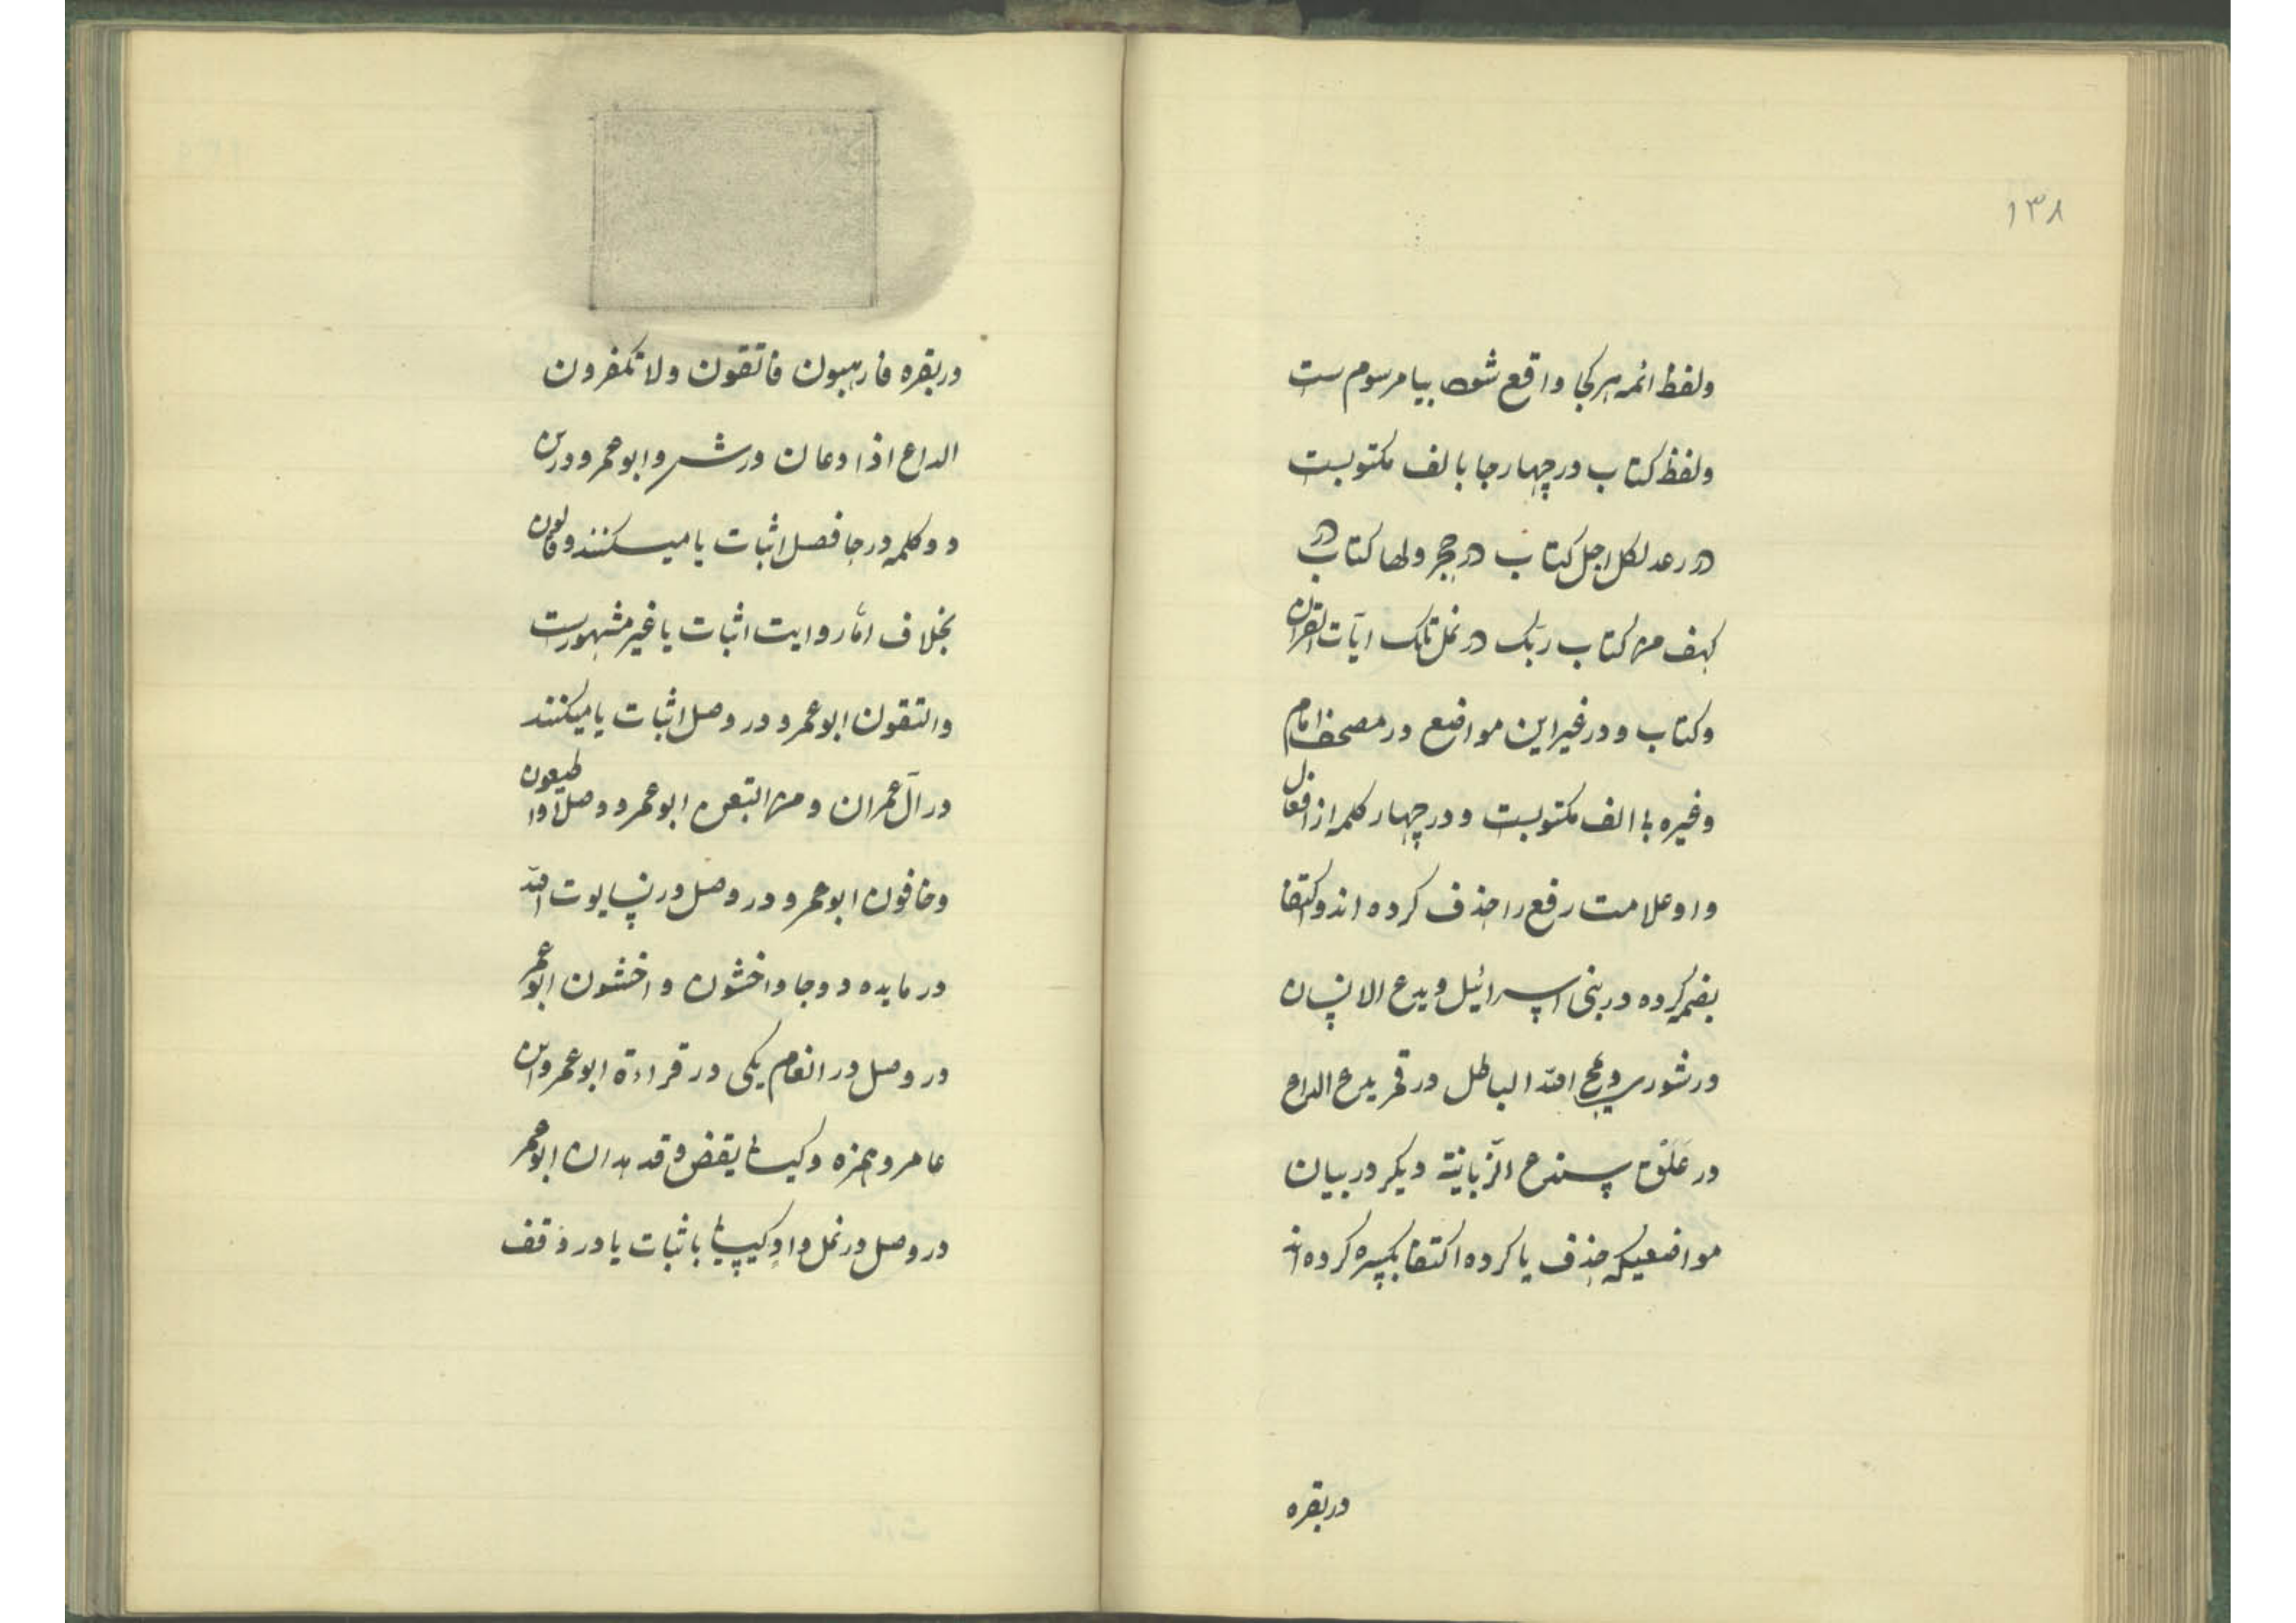 ۱۳۸
ولفظ ائمه هر کجا واقع شود بیا مرسوم ست
ولفظ کتاب در چهار جا بالف مکتوبست
در رعد لکل اجل کتاب در حجر ولها کتاب در
کهف من کتاب ربک در نمل تلک ایآت القران
وکتاب و در غیر این مواضع در مصحف امام
وغیره بی الف مکتوبست و در چهار کلمه از افعال
واو علامت رفع را حذف کرده اند واکتفا
بضمه کرده در بنی اسرائیل ویدع الانسان
در شوری ویمح الله الباطل در قمر یدع الداع
در عَلَق سندع الزّبانیة دیکر در بیان
مواضعیکه حذف یا کرده اکتفا بکسره کرده اند
در بقره
در بقره فارهبون فاتقون ولا تکفرون
الداع اذا دعان ورش وابوعمرو درین
دو کلمه در جا فصل اثبات یا میکنند وقالون
بخلاف امّا روایت اثبات یا غیر مشهورست
واتقون ابوعمرو در وصل اثبات یا میکنند
در آل عمران ومن اتبعن ابوعمرو وصلا واطیعون
وخافون ابوعمرو در وصل در نسا یوت الله
در مایده دو جا واخشون واخشون ابوعمر
در وصل در انعام یکی در قراءة ابوعمرو ابن
عامر وحمزه وکسائی یقض وقد هدان ابوعمر
در وصل در نمل واد کسائی باثبات یا در وقف